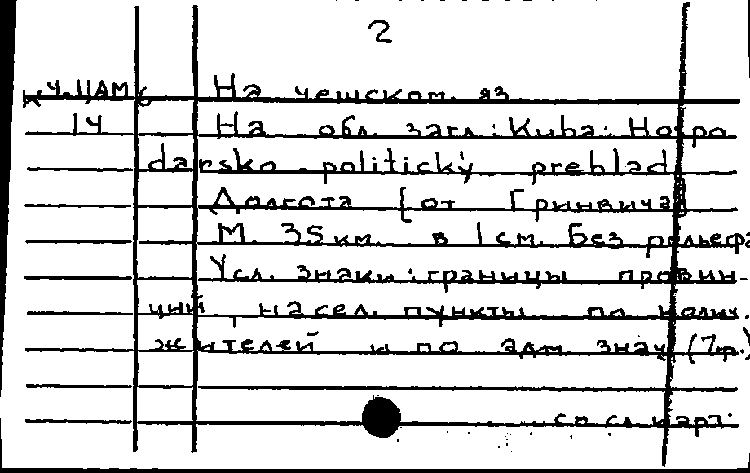 2
На чешском яз
14 На обл. загл.: Kuba: Hospo
darsko politický prehlad
Долгота [от Гринвича]
М. 35 км. в 1 см. Без рельефа
Усл. знаки: границы провин-
ций, насел. пункты по колич.
жителей и по адм. знач (7гр.)
см сл карт.